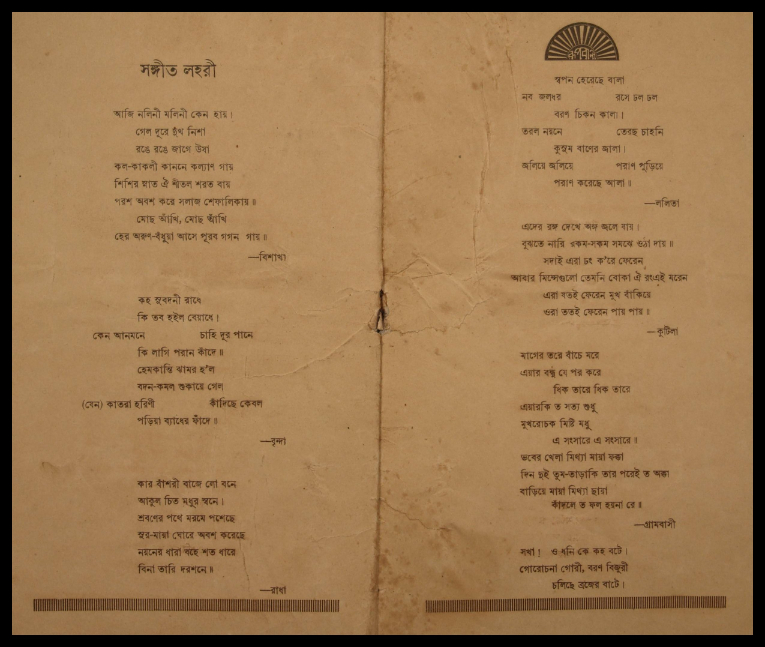 সঙ্গীত লহরী
আজি নলিনী মলিনী কেন হায়।
গেল দূরে দুঁখ নিশা
রঙে রঙে জাগে উষা
কল-কাকলী কাননে কল্যাণ গায়
শিশির স্নাত ঐ শীতল শরত বায়
পরশ অবশ করে সলাজ শেফালিকায়॥
মোছ আঁখি, মোছ আঁখি
হের অরুণ-বঁধুয়া আসে পূরব গগন গায়॥
—বিশাখা
কহ সুবদনী রাধে
কি তব হইল বেয়াধে।
কেন আনমনে চাহি দূর পানে
কি লাগি পরান কাঁদে॥
হেমকান্তি ঝামর হ'ল
বদন-কমল শুকায়ে গেল
(যেন) কাতরা হরিণী কাঁদিছে কেবল
পড়িয়া ব্যাধের ফাঁদে॥
—বৃন্দা
কার বাঁশরী বাজে লো বনে
আকুল চিত মধুর স্বনে।
শ্রবণের পথে মরমে পশেছে
সুর-মায়া ঘোরে অবশ করেছে
নয়নের ধারা বহে শত ধারে
বিনা তারি দরশনে॥
—রাধা
রূপবাণী
স্বপন হেরেছে বালা
নব জলধর রসে ঢল ঢল
বরণ চিকন কালা।
তরল নয়নে তেরছ চাহনি
কুসুম বাণের জ্বালা।
জ্বলিয়ে জ্বলিয়ে পরাণ পুড়িয়ে
পরাণ করেছে আলা॥
—ললিতা
এদের রঙ্গ দেখে অঙ্গ জ্বলে যায়।
বুঝতে নারি রকম-সকম সমঝে ওঠা দায়॥
সদাই এরা ঢং ক'রে ফেরেন
আবার মিন্সেগুলো তেমনি বোকা ঐ রংএই মরেন
এরা যতই ফেরেন মুখ বাঁকিয়ে
ওরা ততই ফেরেন পায় পায়॥
—কুটিলা
মাগের তরে বাঁচে মরে
এয়ার বন্ধু যে পর করে
ধিক তারে ধিক তারে
এয়ারকি ত সত্য শুধু
মুখরোচক মিষ্টি মধু
এ সংসারে এ সংসারে॥
ভবের খেলা মিথ্যা মায়া ফক্কা
দিন দুই তুম-তাড়াকি তার পরেই ত অক্কা
বাড়িয়ে মায়া মিথ্যা ছায়া
কাঁদলে ত ফল হয়না রে॥
—গ্রামবাসী
সখা! ও ধনি কে কহ বটে।
গোরোচনা গোরী, বরণ বিজুরী
চলিছে ব্রজের বাটে।